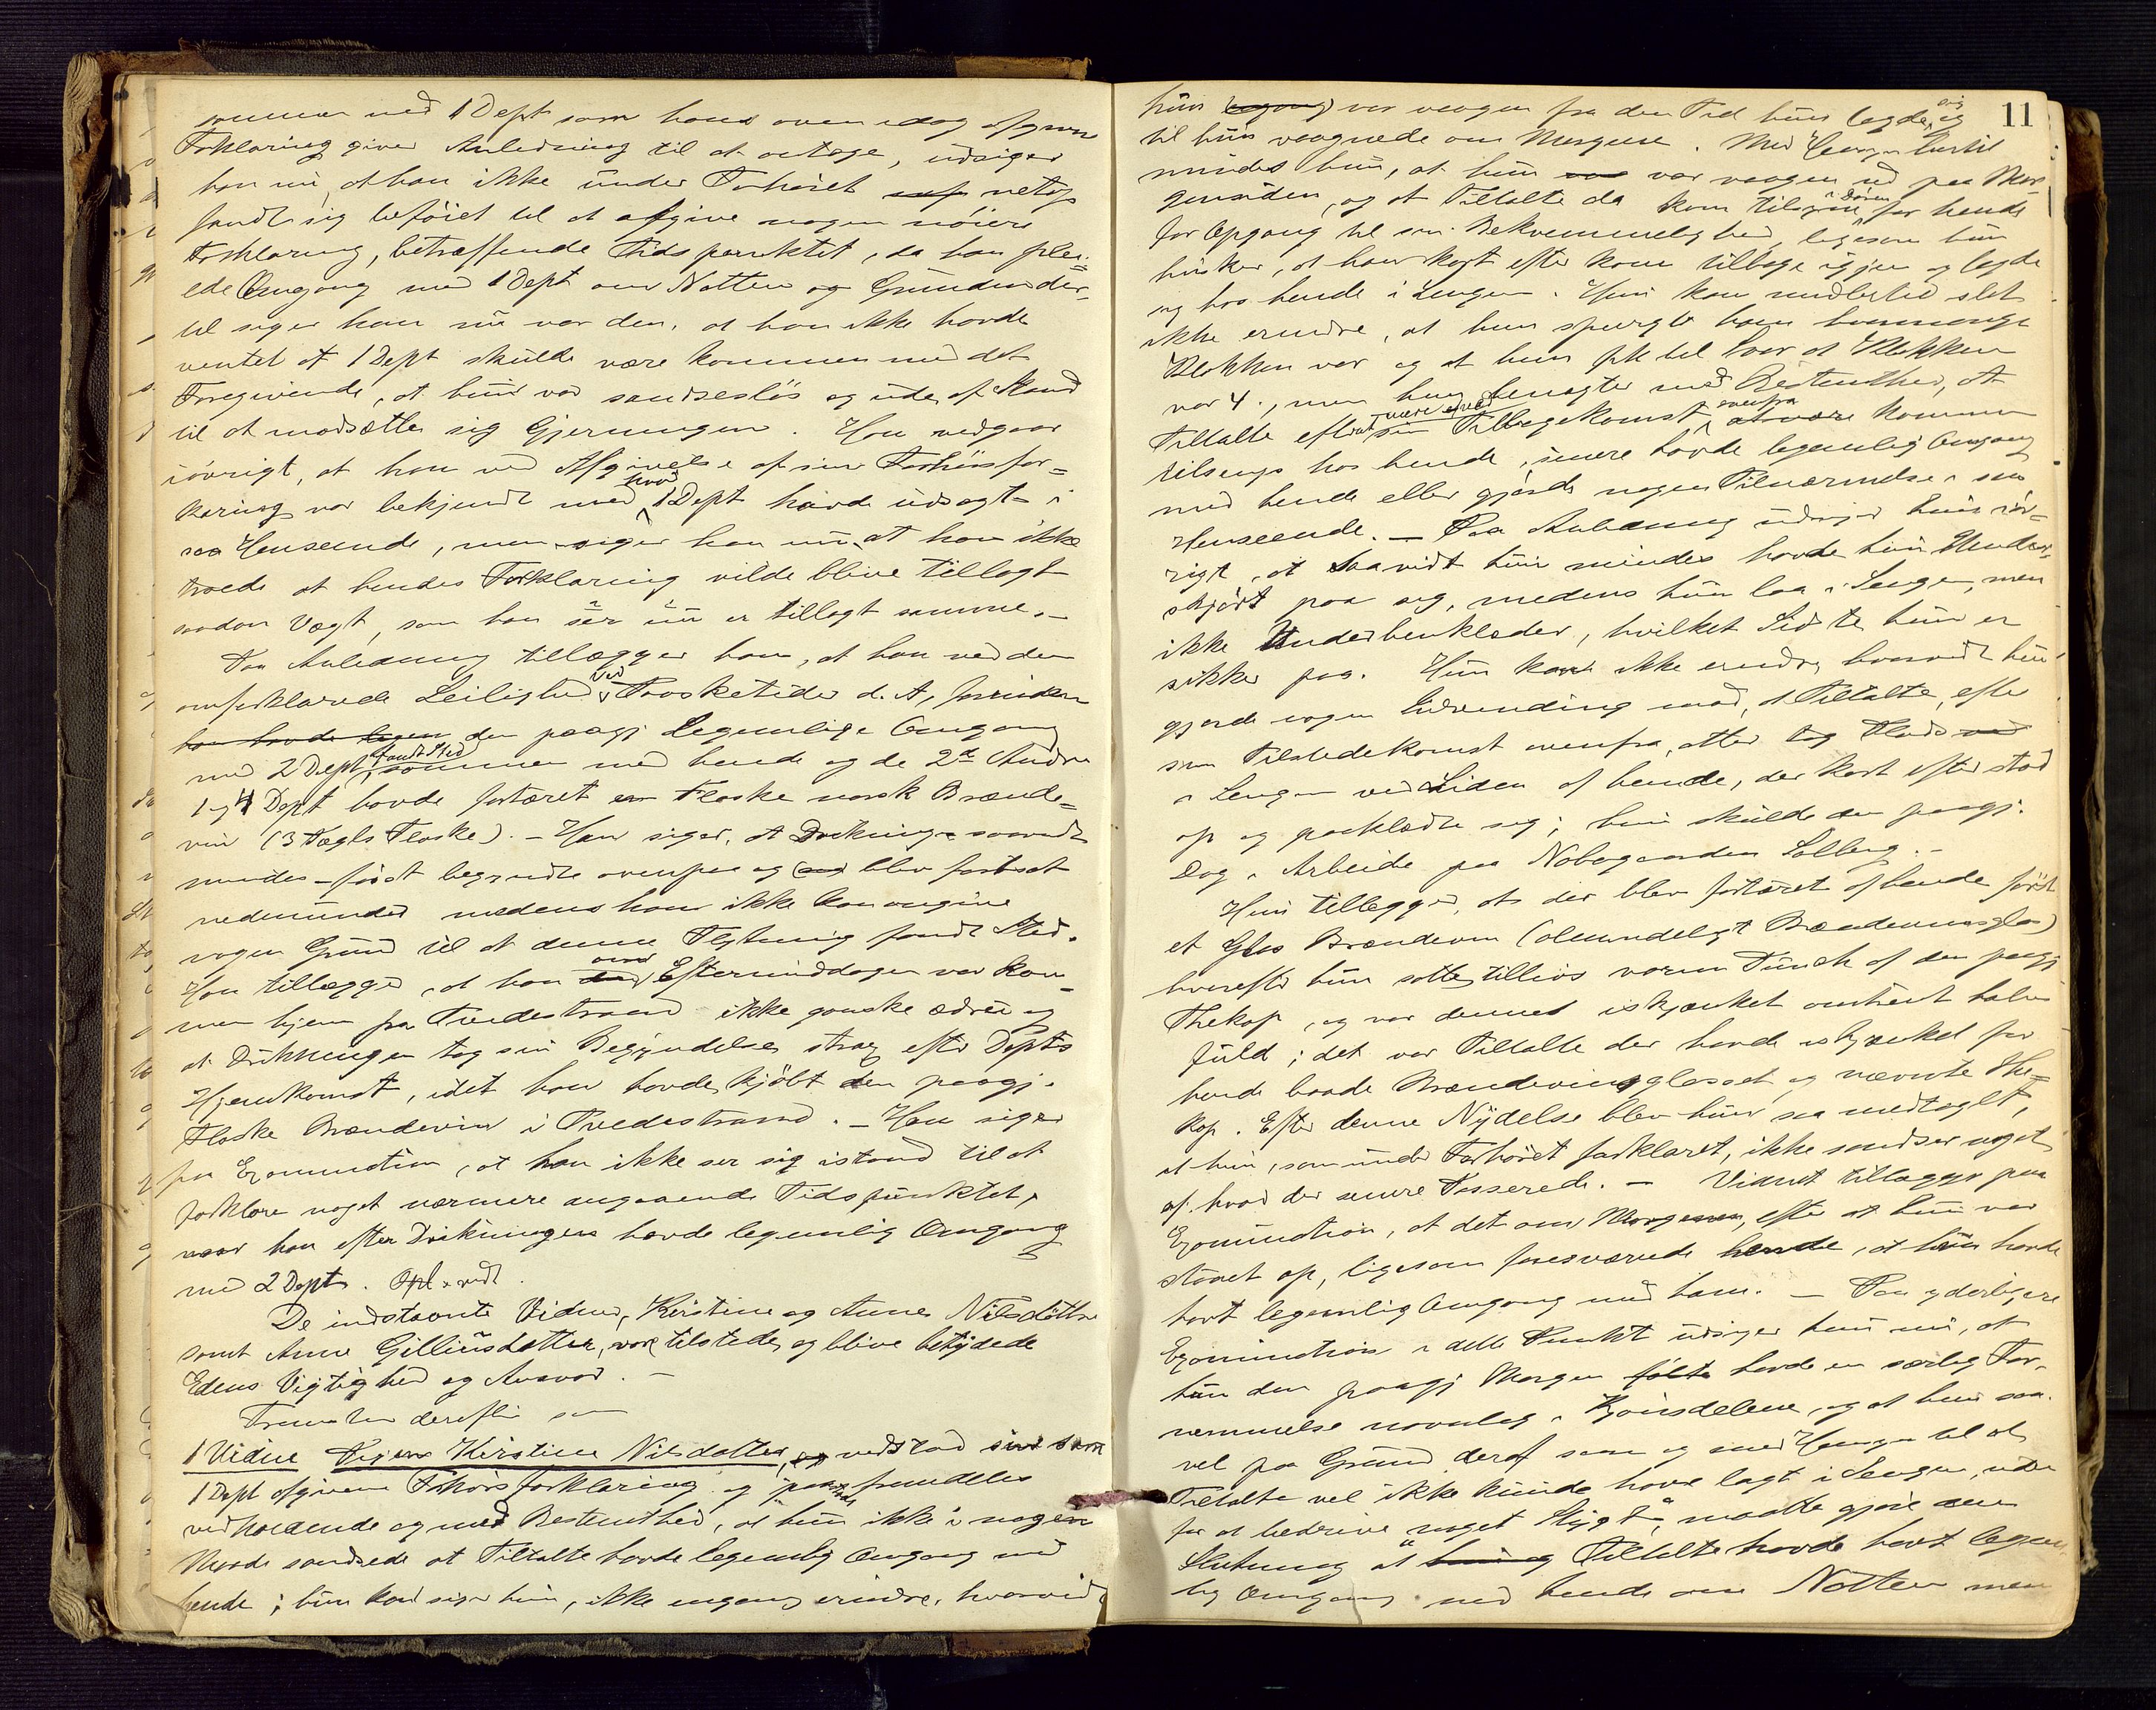 sammen med 1 Dept som hans oven idag afgivne
Forklaring giver Anledning til at antage, udsiger
han nu, at han ikke under Forhøret netop
fandt sig beføiet til at afgive nogen nøiere
Forklaring, betræffende Tidspunktet, da han plei-
ede Omgang med 1 Dept om Natten og Grunden der-
til siger han nu var den, at han ikke havde
ventet at 1 Dept skulde være kommen med det
Foregivende, at hun var sandsesløs og ude af Stand
til at modsætte sig Gjerningen. Han vedgaar
iøvrigt, at han ved Afgivelse af sin Forhørsfor-
klaring var bekjendt med hvad 1 Dept havde udsagt i
saa Henseende, men siger han nu, at han ikke
troede at hendes Forklaring vilde blive tillagt
saadan Vægt, som han ser nu er tillagt samme.-
Paa Anledning tillægger han, at han ved den
omforklarede Leilighed ved Paasketider d. A, forinden
han havde legem den paagj. Legemlige Omgang
med 2 Dept, fandt Sted sammen med hende og de 2de Andre
1 og 4 Dept havde fortæret en Flaske norsk Brænde-
vin (3 Pægls Flaske). - Han siger, at Drikningen saavidt
mindes - først begyndte ovenpaa og blev fortsat
nedenunder medens han ikke kan angive
nogen Grund til at denne Flytning fandt Sted.
Han tillægger, at han om Eftermiddagen var kom-
men hjem fra Tvedestrand ikke ganske ædru og
at Drikningen tog sin Begyndelse strax efter Depts
Hjemkomst, idet han havde kjøbt den paagj.
Flaske Brændevin i Tvedestrand. - Han siger
paa Examination, at han ikke ser sig istand til at
forklare noget nærmere angaaende Tidspunktet,
naar han efter Drikningen havde legemlig Omgang
med 2 Dept. Opl. vedt.
De indstævnte Vidner, Kirstine og Anne Nilsdøttre
samt Anne Gilliusdatter, var tilstede, og blive betydede
Edens Vigtighed og Ansvar. -
Fremsten derefter som
1 Vidne Pigen Kirstine Nilsdatter, vedstod sin som
1 Dept afgivne Forhørsforklaring og paastod fremdeles
vedholdende og med Bestemthed, at hun ikke i nogen
Maade sandsede at Tiltalte havde legemlig Omgang med
hende; hun kan siger hun, ikke engang erindre, hvorvidt
11
hun var vaagen fra den Tid hun lagde sig og
til hun vaagnede om Morgenen. Med Hensyn hertil
mindes hun, at hun var vaagen ud paa Mor-
gensiden, og at Tiltalte da kom tilsyne i Døren for hende
for Opgang til sin Bekvemmelighed, ligesom hun
husker, at han kort efter kom tilbage igjen og lagde
sig hos hende i Sengen. Hun kan imidlertid slet
ikke erindre, at hun spurgte ham hvormange
Klokken var og at hun fik til Svar at Klokken
var 4., men hun benægter med Bestemthed, at
Tiltalte efter sin Tilbagekomst ovenfra at være kommen
tilsengs hos hende, senere havde legemlig Omgang
med hende eller gjorde nogen Tilnærmelse i saa
Henseende. - Paa Anledning udsiger hun iøv-
rigt, at saavidt hun mindes havde hun Under-
skjørt paa sig, medens hun laa i Sengen, men
ikke Underbenklæder, hvilket Sidste hun er
sikker paa. Hun kan ikke erindre, hvorvidt hun
gjorde nogen Indvending mod, at Tiltalte, efter
sin Tilstedekomst ovenfra, atter tog Plads
i Sengen ved Siden af hende, der kort efter stod
op og paaklædte sig; hun skulde den paagj.
Dag i Arbeide paa Nabogaarden Solberg. -
Hun tillægger, at der blev fortæret af hende først
et Glas Brændevin (almindeligt Brændevinsglas)
hvorefter hun satte tillivs varm Punch af den paagj.
Thekop, og var denne iskjænket omtrent halv
fuld; det var Tiltalte der havde iskjænket for
hende baade Brændevinsglasset og nævnte The-
kop. Efter denne Nydelse blev hun saa medtaget,
at hun, som under Forhøret forklaret, ikke sandser noget
af hvad der senere Passerede. - Vidnet tillægger paa
Examination, at det om Morgenen, efter at hun var
staaet op, ligesom foresvævede hende, at hun havde
havt legemlig Omgang med ham. - Paa yderligere
Examination i dette Punkt udsiger hun nu, at
hun den paagj. Morgen følte havde en særlig For-
nemmelse navnlig i Kjønsdelene, og at hun saa-
vel paa Grund deraf som og med Hensyn til at
Tiltalte vel ikke kunde have lagt i Sengen, uden
for at bedrive noget Stygt, maatte gjøre den
Slutning at Tiltalte havde havt legem-
lig Omgang med hende om Natten men